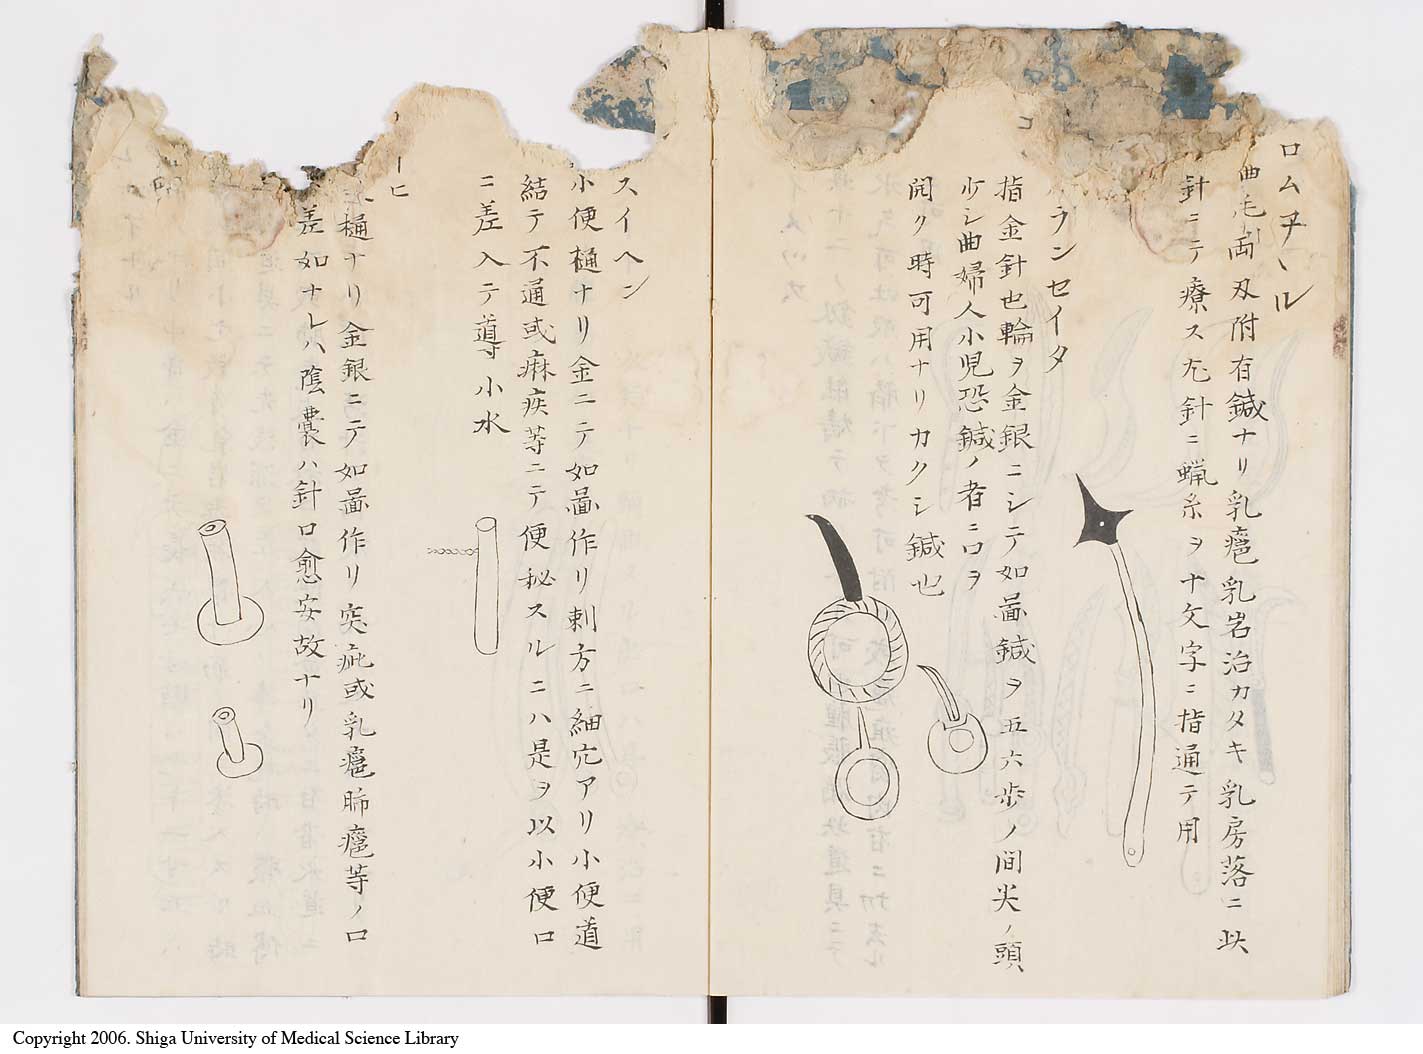 ロムヲヽル
曲 両刄附有鍼ナリ乳瘡乳岩治カタキ乳房落ニ此
針ニテ療ス尤針ニ蝋糸ヲ十文字ニ指通テ用
ランセイタ
指金針也輪ヲ金銀ニシテ如啚鍼ヲ五六歩ノ間尖ノ頭
少シ曲婦人小児恐鍼ノ者ニ口ヲ
開ク時可用ナリカクシ鍼也
スイヘン
小便樋ナリ金ニテ如啚作リ剌方ニ細穴アリ小便道
結テ不通或麻疾等ニテ便秘スルニハ是ヲ以小便口
ニ差入テ導小水
ーヒ
樋ナリ金銀ニテ如啚作リ 或乳瘡 瘡等ノ口
差如ナレハ陰嚢ハ針口愈安故ナリ
Copyright 2006. Shiga University of Medical Science Library